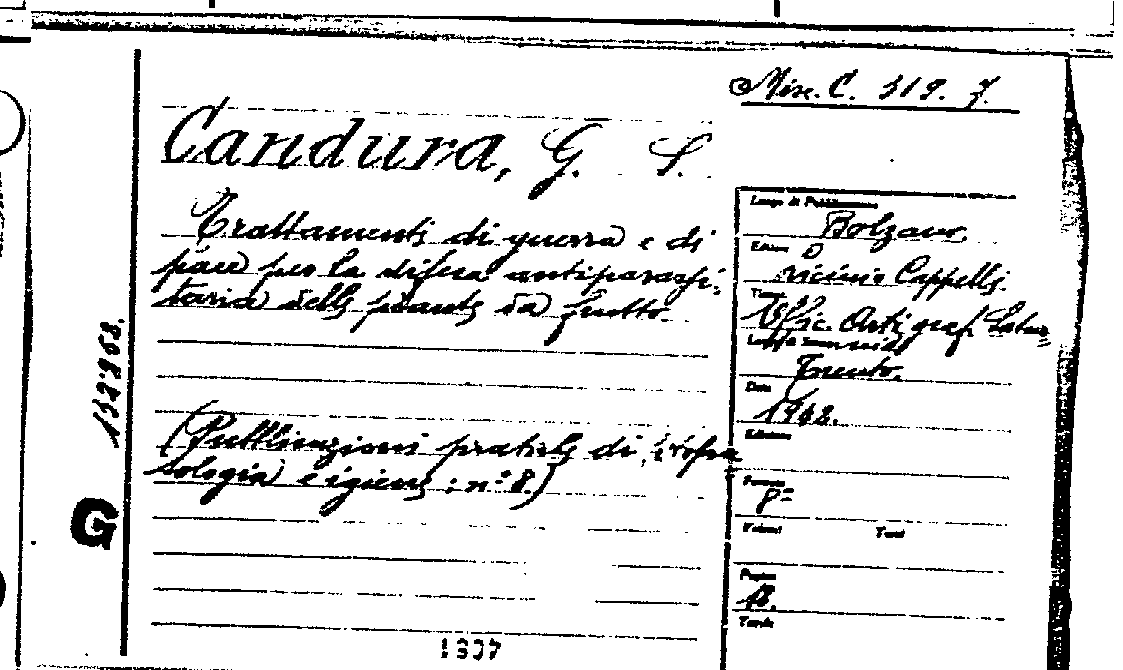 Misc. C. 319. 7.
Candura, G. S.
Trattamenti di guerra e di
pace per la difesa antiparassi-
taria delle piante da frutto
(Pubblicazioni pratiche di
sologia e igiene; n° 8.)
Luogo di Pubblicazione
Bolzano
Editore
Cappelli
Tipog.
Uffic. Arti graf.
Trento.
Data
1942.
Edizione
Formato
8°
Volumi Tomi
Pagine
18.
Tavole
G
1937